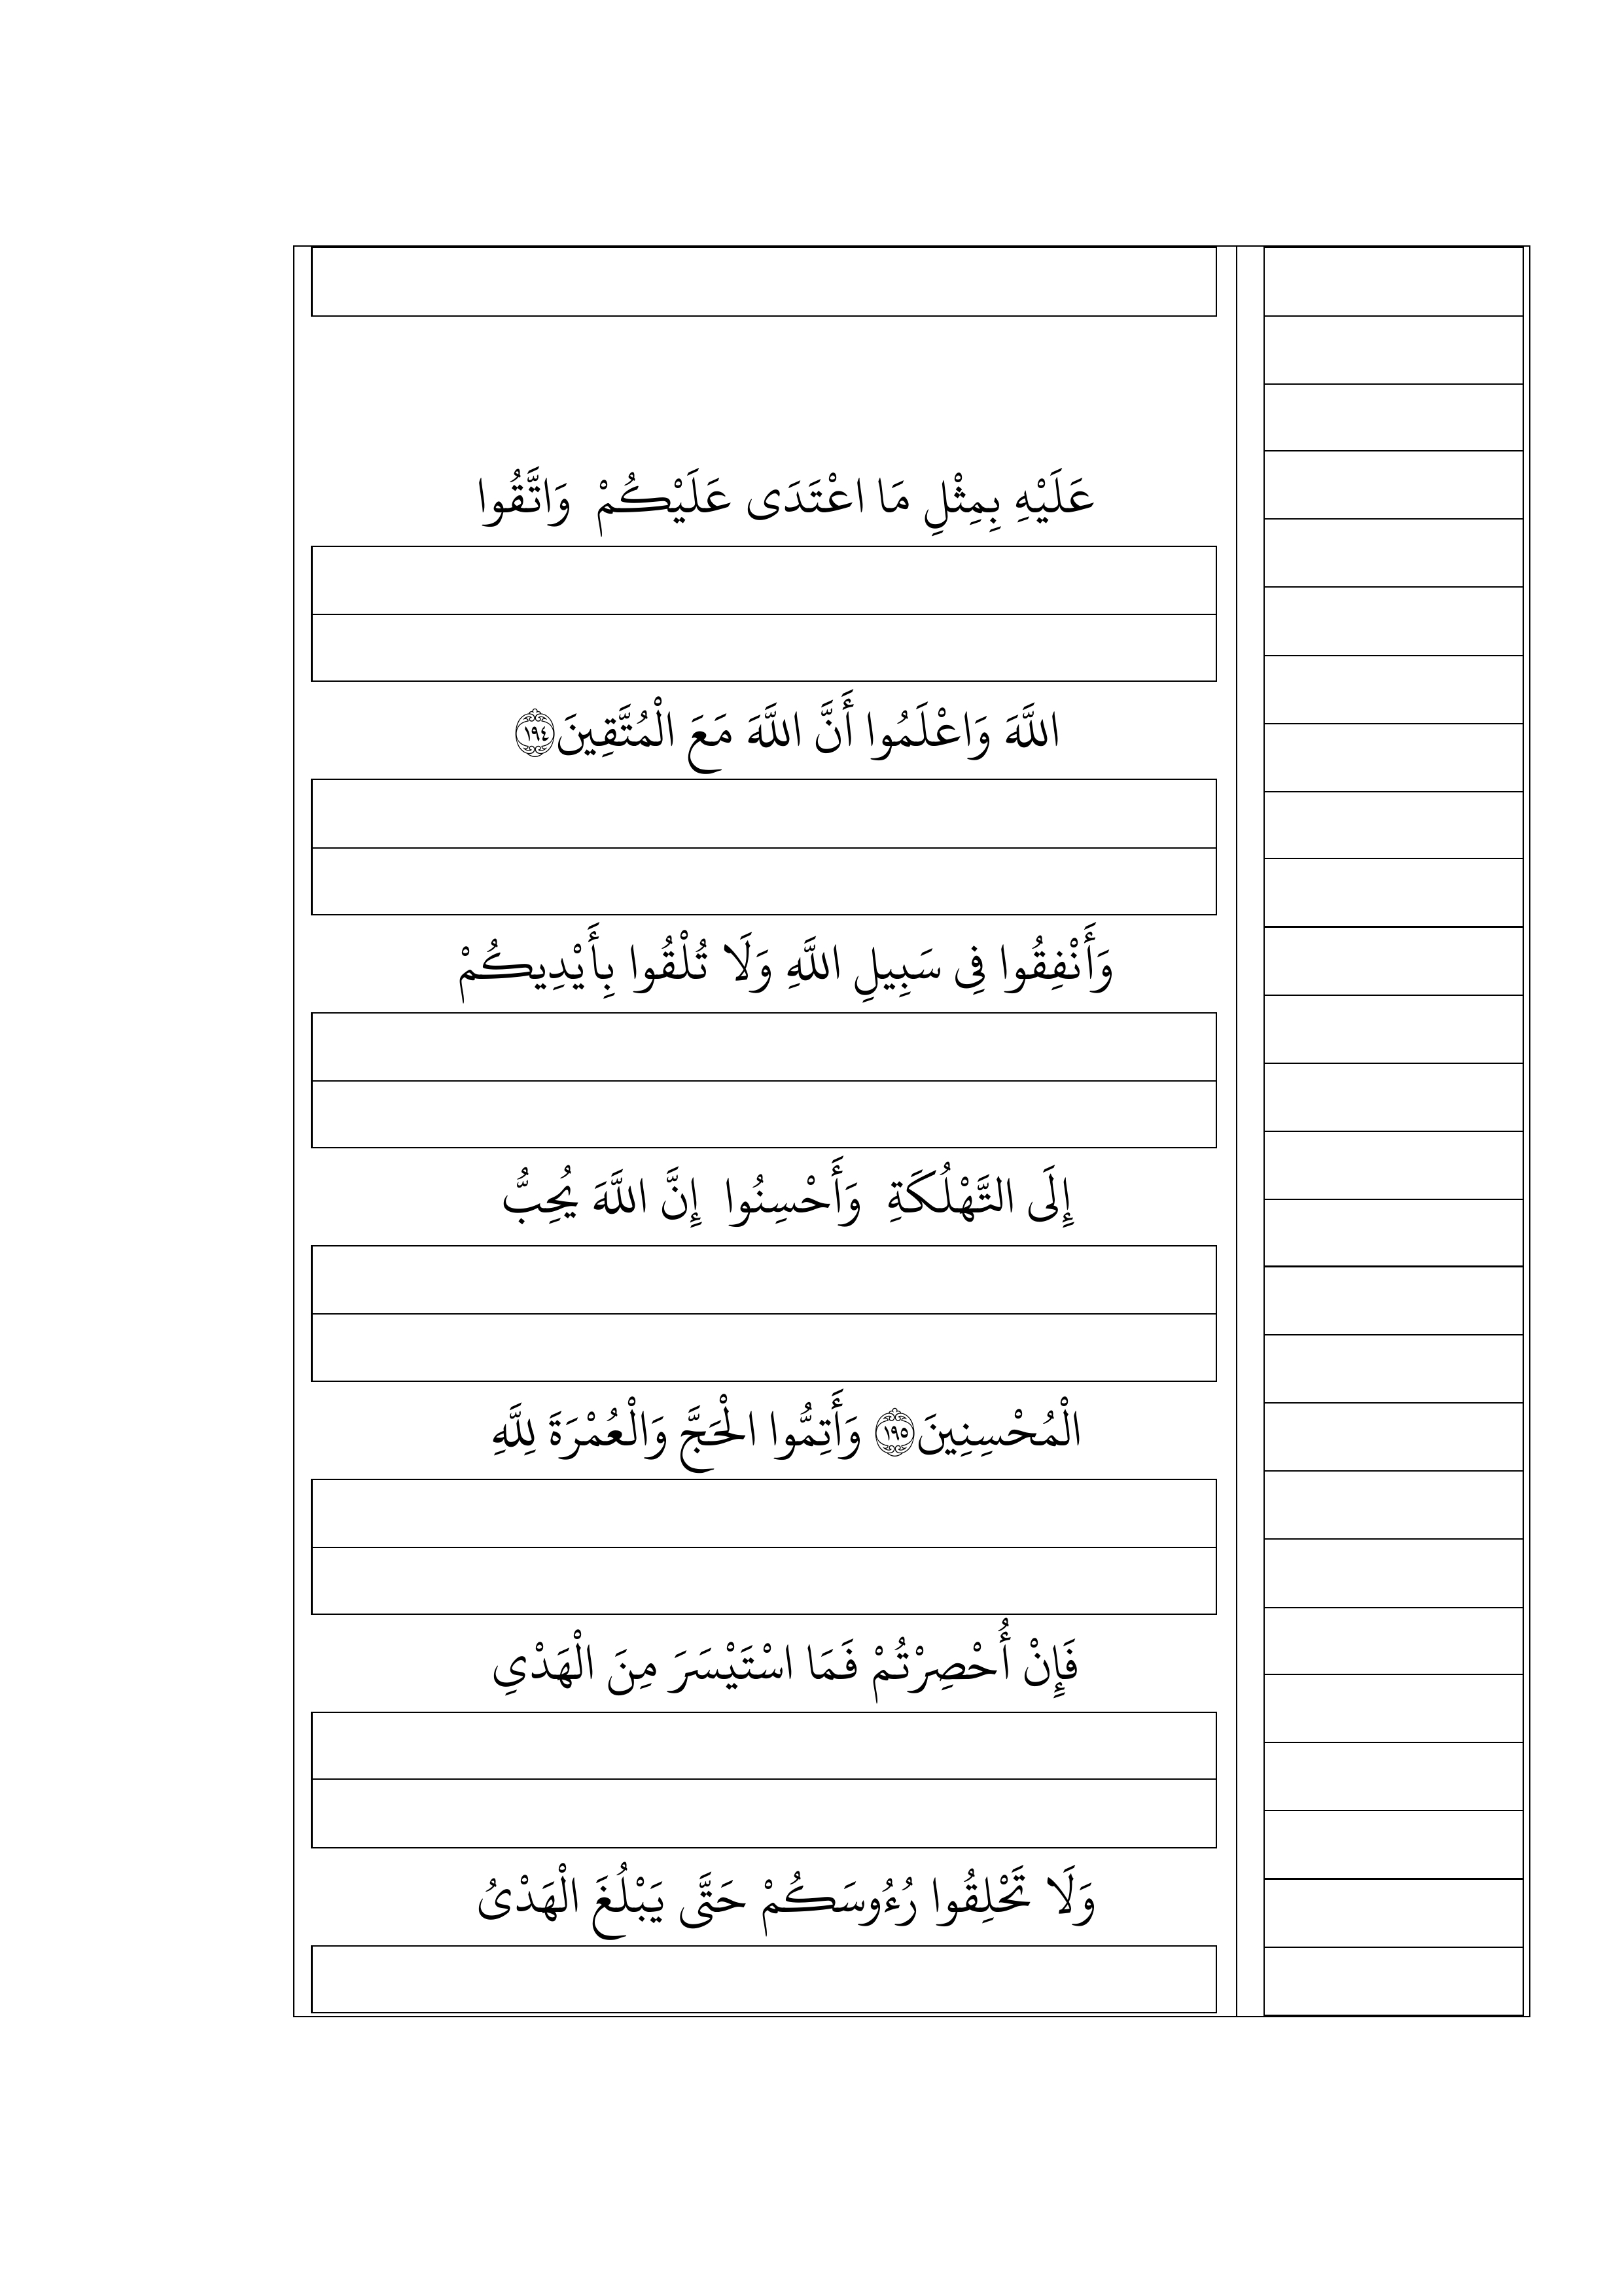 عَلَيْهِ بِمِثْلِ مَا اعْتَدَى عَلَيْكُمْ وَاتَّقُوا
اللَّهَ وَاعْلَمُوا أَنَّ اللَّهَ مَعَ الْمُتَّقِينَ ﴿١٩٤﴾
وَأَنْفِقُوا فِى سَبِيلِ اللَّهِ وَلَا تُلْقُوا بِأَيْدِيكُمْ
إِلَى التَّهْلُكَةِ وَأَحْسِنُوا إِنَّ اللَّهَ يُحِبُّ
الْمُحْسِنِينَ ﴿١٩٥﴾ وَأَتِمُّوا الْحَجَّ وَالْعُمْرَةَ لِلَّهِ
فَإِنْ أُحْصِرْتُمْ فَمَا اسْتَيْسَرَ مِنَ الْهَدْىِ
وَلَا تَحْلِقُوا رُءُوسَكُمْ حَتَّى يَبْلُغَ الْهَدْىُ